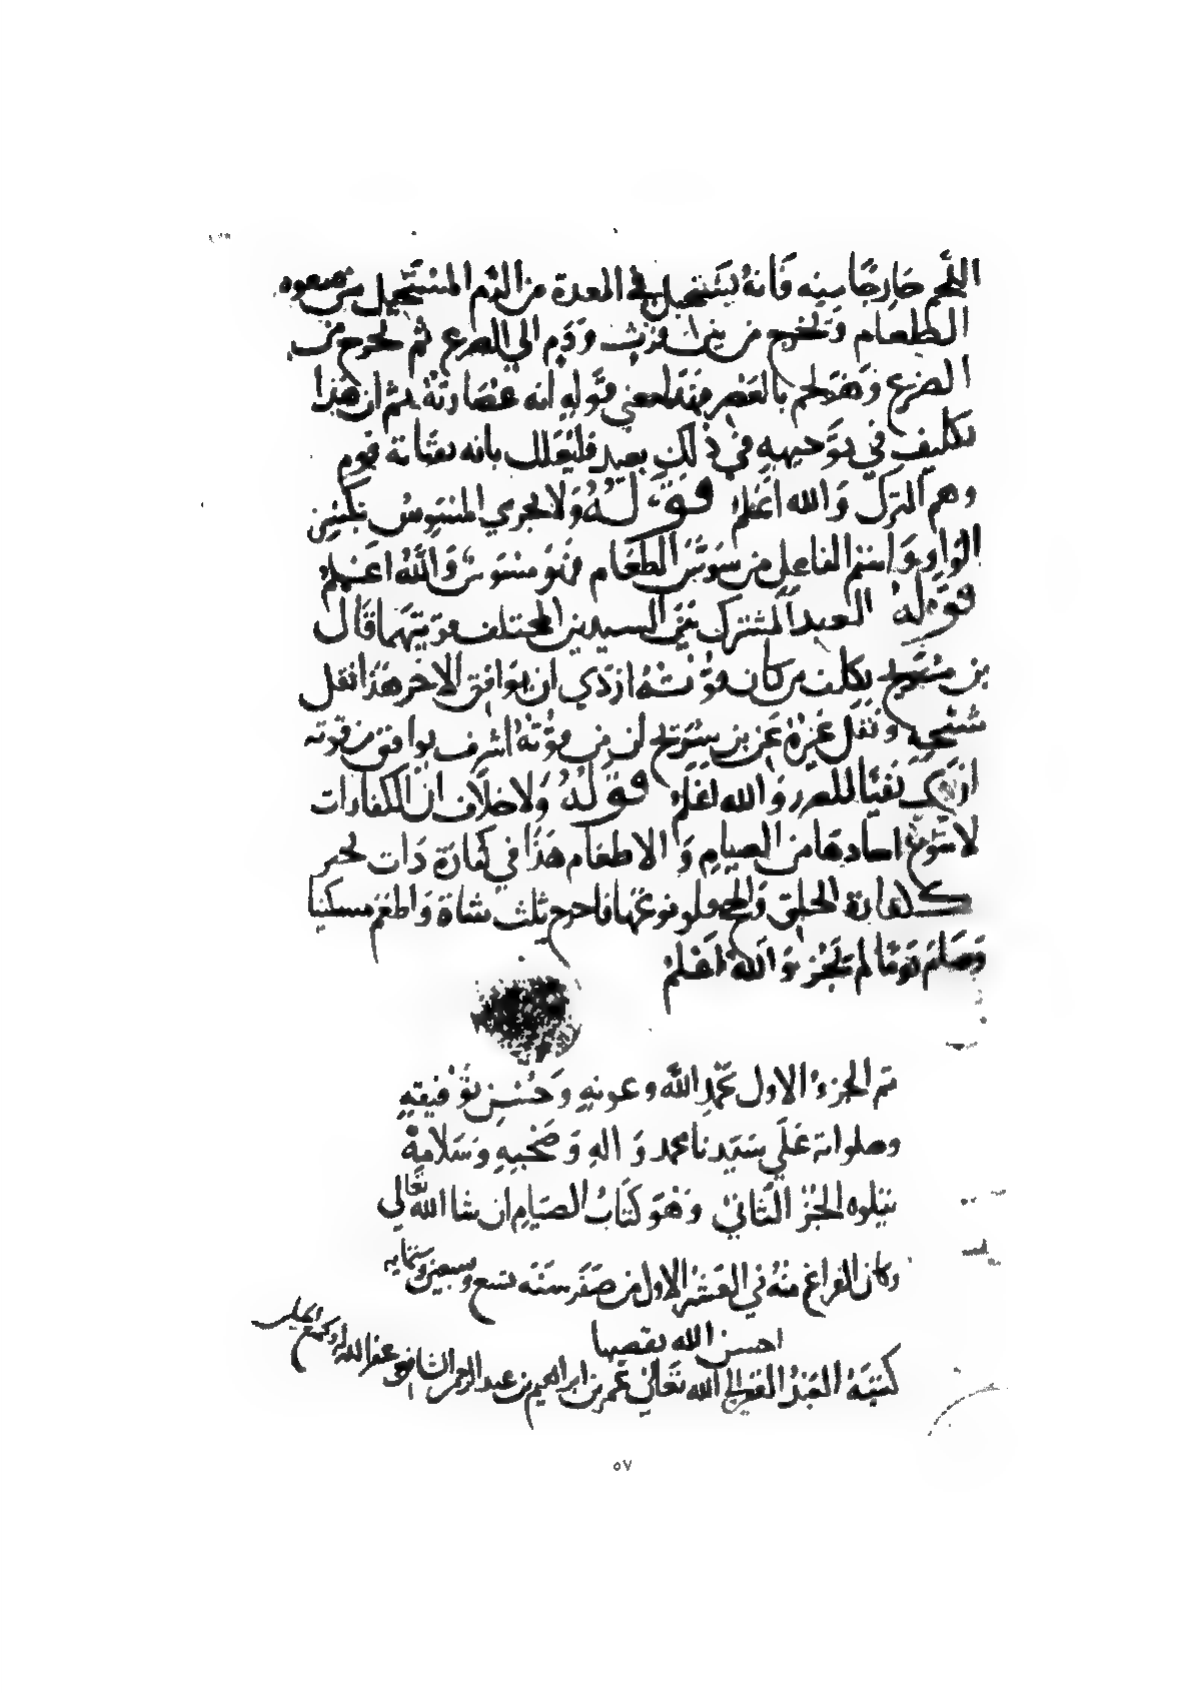 اللحم خارجًا منه فَانهُ يَسْتحيل في المعدة من الدم المسْتَحيل من صفوه
الطعَام وَيخرج من بين فرث وَدَم الي الضرع ثم يخرج من
الضرع وَهو لحم بالعصر فهَذا معني قوله انه عُصَارتهُ ثم ان هَذا
تكليف في توَجيهه في ذلك بعيد فليعَلل بانه نقتاته قوم
وهم الترك وَالله اعَلم قوَلهُ وَلا يجزي المسَوِسُ بكسْر
الوَاو وَاسْم الفاعِل من سَوَّسَ الطعَام فهُوَ مسَوس وَاللهُ اعَلم
قوَله العبد المشترك بَيْن السيدين المختلف قوتيهمَا قَال
بن سُرَيج يكلف من كان قوته اردي ان يوَافق الاخر هَذا نقل
شيْخيه وَنقل غيرهُ عَن بن سُرَيج ان من قوتهُ اشرف يوافق من قوته
اردي نفيًا للضرر وَالله اعَلم قوَلهُ وَلا خلاَف ان الكفارات
لا تتوَزع احادها من الصيام وَ الاطعَام هَذا في كفارة ذَات تخير
ككفارة الحلق وَالحج فلو نوعَهَا فاخرج ثلث شاة وَاطعَم مسكينا
وَصَامَ يَومًا لم يَجْز وَالله اعَلم
تم الجزءُ الاول بحَمْدِ الله وعونهِ وَحُسْن توْفيقهِ
وصلواته عَلَي سَيّدنا محمد وَ الهِ وَ صَحْبِهِ وَسَلامهْ
يَتلوه الجُزُ الثاني وَهْوَ كتَابُ الصيَامِ ان شا الله تعَالي
وكان الفراغ منهُ في العَشْر الاول من صَفَر سَنَه تسع وسبعين وستمايه
احسن الله تقضيها
كتبَهُ العَبْدُ الفقير الي الله تعَالي عُمر بن ابراهيم بن عبد الرحمن الشافعي عفا الله